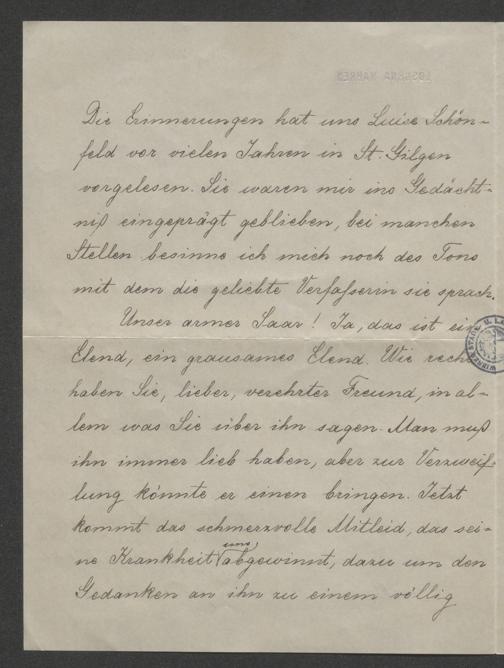 Die Erinnerungen hat uns Luise Schön-
feld vor vielen Jahren in St. Gilgen
vorgelesen. Sie waren mir ins Gedächt-
niß eingeprägt geblieben, bei manchen
Stellen besinne ich mich noch des Tons
mit dem die geliebte Verfaßerin sie sprach.
Unser armer Saar! Ja, das ist ein
Elend, ein grausames Elend. Wie recht
haben Sie, lieber, verehrter Freund, in al-
lem was Sie über ihn sagen. Man muß
ihn immer lieb haben, aber zur Verzweif-
lung könnte er einen bringen. Jetzt
kommt das schmerzvolle Mitleid, das sei-
ne Krankheit uns abgewinnt, dazu um den
Gedanken an ihn zu einem völlig